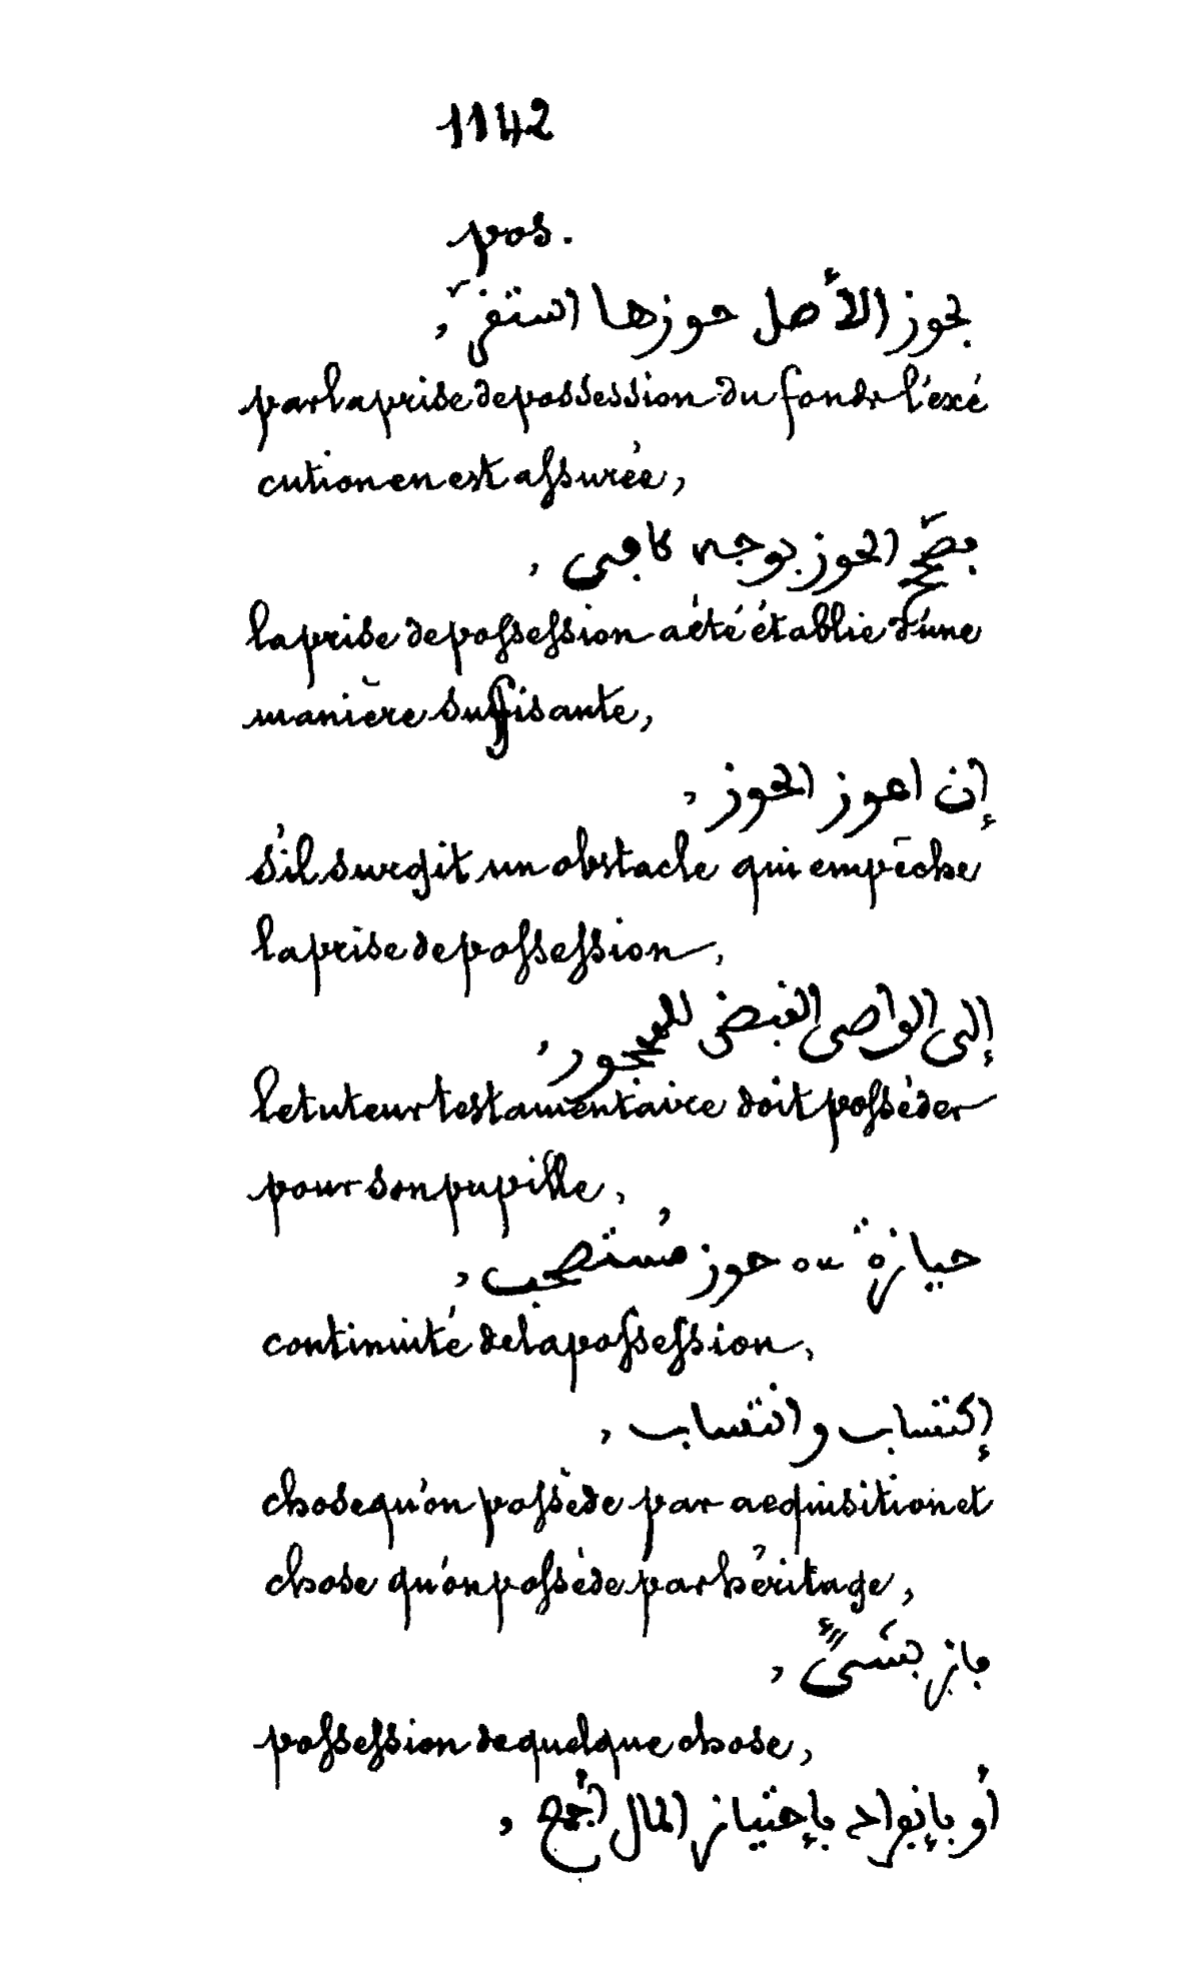 1142
pos.
بحوز الأصل حوزها استفرّ,
par la prise de possession du fonds l'éxé
cution en est assurée,
بصحّ الحوز بوجه كافٍ,
la prise de possession a été établie d'une
manière suffisante,
إن اعوز الحوز,
s'il surgit un obstacle qui empêche
la prise de possession,
إلى الواصى الفبض للمحجور,
le tuteur testamentaire doit posséder
pour son pupille,
حيازة ou حوز مُستصحب,
continuité de la possession,
إكتساب و انتساب,
chose qu'on possède par acquisition et
chose qu'on possède par héritage,
possession de quelque chose,
أو بإنبراد بإحتياز المال أجمع,